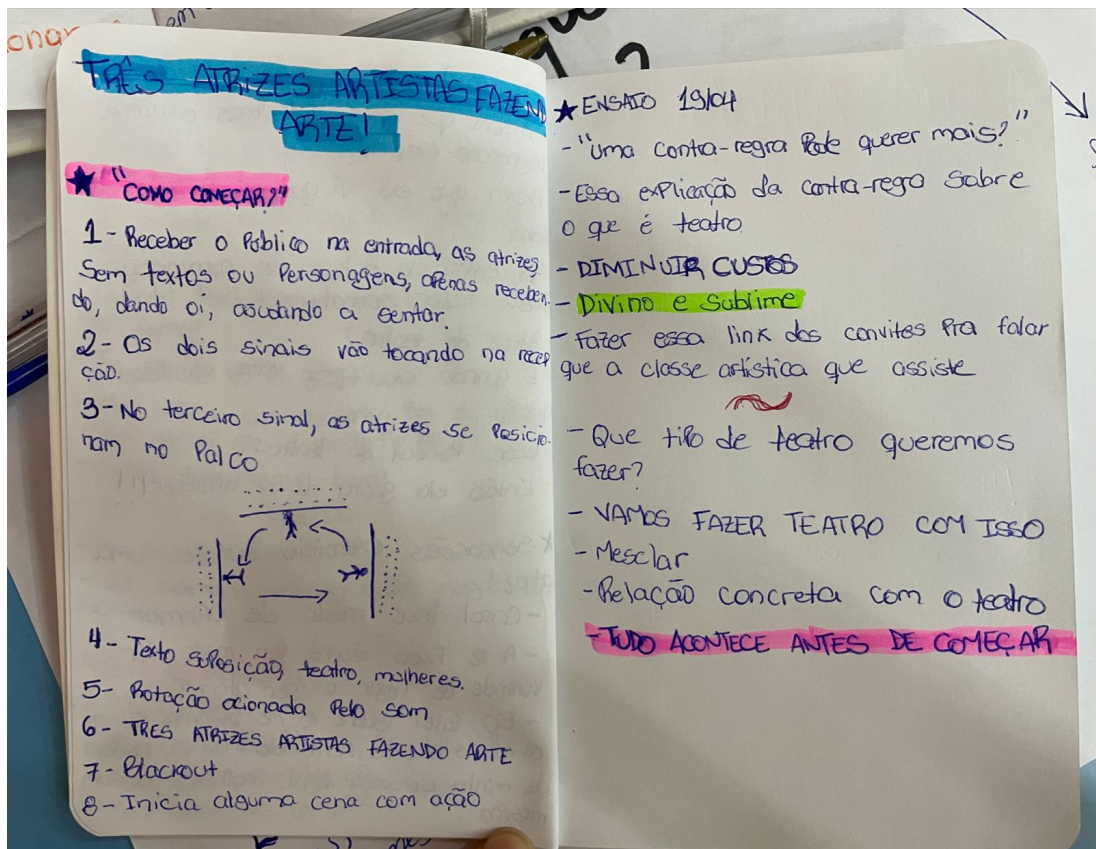 TRÊS ATRIZES ARTISTAS FAZEND
ARTE!
★ "COMO COMEÇAR?"
1- Receber o Público na entrada, as atrizes
Sem textos ou Personagens, apenas receben-
do, dando oi, ajudando a sentar.
2- Os dois sinais vão tocando na recep
ção.
3- No terceiro sinal, as atrizes se Posicio-
nam no Palco
4- Texto suposição, teatro, mulheres.
5- Rotação acionada Pelo som
6- TRES ATRIZES ARTISTAS FAZENDO ARTE
7- Blackout
8- Inicia alguma cena com ação
★ ENSAIO 19/04
- "Uma contra-regra Pode querer mais?"
- Essa explicação da contra-rega sobre
o que é teatro
- DIMINUIR CUSTOS
- Divino e Sublime
- Fazer essa link dos convites Pra falar
que a classe artística que assiste
- Que tipo de teatro queremos
fazer?
- VAMOS FAZER TEATRO COM ISSO
- Mesclar
- Relação concreta com o teatro
- TUDO ACONTECE ANTES DE COMEÇAR